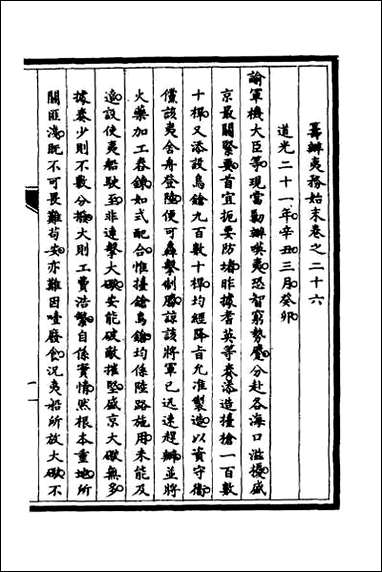 籌辦夷務始末卷之二十六
道光二十一年辛丑三月癸卯
諭軍機大臣等現當勦辦㗸夷恐智窮勢蹙分赴各海口滋擾盛
京最關緊要首宜扼要防堵昨據耆英等奏添造擡槍一百數
十桿又添設鳥鎗九百數十桿均經降旨允准製造以資守衛
儻該夷舍舟登陸便可轟擊制勝諒該將軍已迅速趕辦並將
火藥加工舂鎚如式配合惟擡鎗鳥鎗均係陸路施用未能及
遠設使夷船駛至非連擊大礮安能破敵摧堅盛京大礮無多
據奏少則不敷分撥大則工費浩繁自係實情然根本重地所
關匪淺既不可畏難苟安亦難因噎廢食況夷船所放大礮不
一